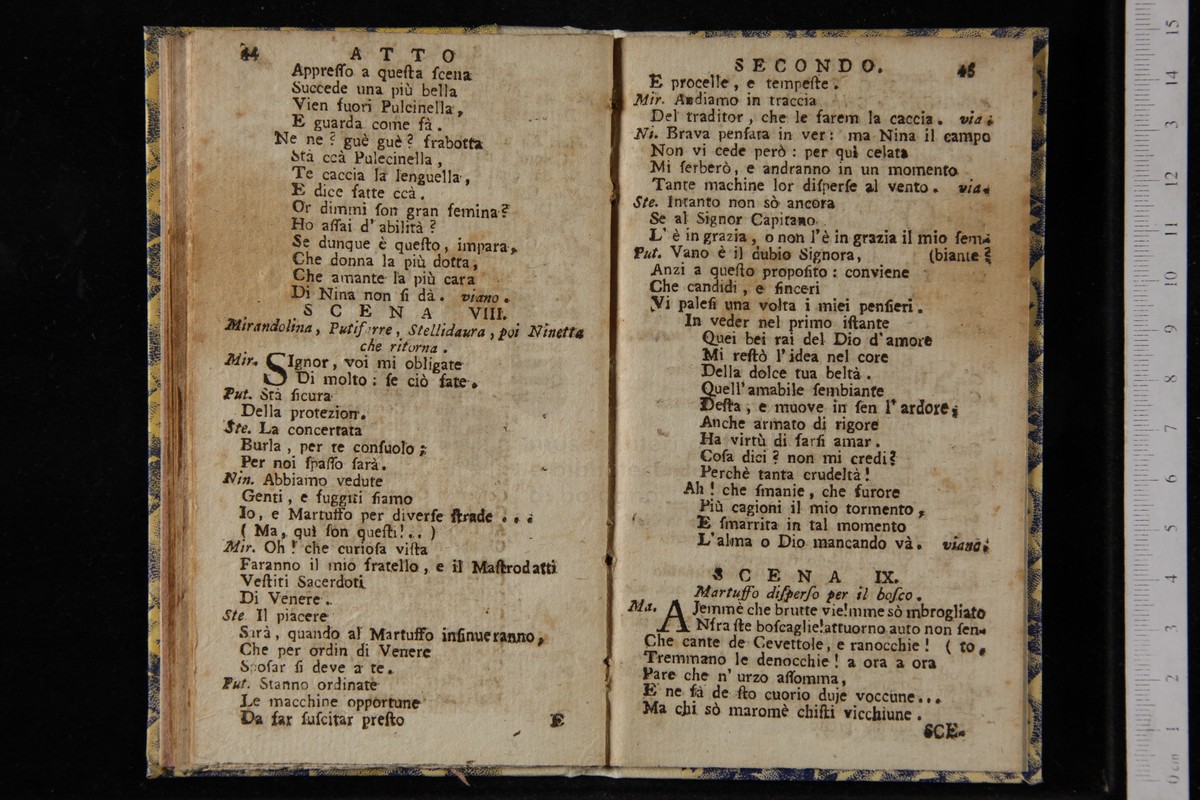 44 ATTO
Appreſſo a queſta ſcena
Succede una più bella
Vien fuori Pulcinella,
E guarda come fà.
Ne ne? guè guè? frabotta
Stà ccà Pulecinella,
Te caccia la lenguella,
E dice fatte ccà.
Or dimmi ſon gran femina?
Ho aſſai d'abilità?
Se dunque è queſto, impara,
Che donna la più dotta,
Che amante la più cara
Di Nina non ſi dà. viano.
SCENA VIII.
Mirandolina, Putifarre, Stellidaura, poi Ninetta
che ritorna.
Mir. SIgnor, voi mi obligate
Di molto: ſe ciò fate.
Put. Stà ſicura
Della protezion.
Ste. La concertata
Burla, per te conſuolo;
Per noi ſpaſſo ſarà.
Nin. Abbiamo vedute
Genti, e fuggiti ſiamo
Io, e Martuffo per diverſe ſtrade...
(Ma, quì ſon queſti!..)
Mir. Oh! che curioſa viſta
Faranno il mio fratello, e il Maſtrodatti
Veſtiti Sacerdoti
Di Venere..
Ste Il piacere
Sarà, quando al Martuffo inſinueranno,
Che per ordin di Venere
Spoſar ſi deve a te.
Put. Stanno ordinate
Le macchine opportune
Da far ſuſcitar preſto
E
SECONDO. 45
E procelle, e tempeſte.
Mir. Andiamo in traccia
Del traditor, che le farem la caccia. via.
Ni. Brava penſata in ver: ma Nina il campo
Non vi cede però: per quì celata
Mi ſerberò, e andranno in un momento
Tante machine lor diſperſe al vento. via.
Ste. Intanto non sò ancora
Se al Signor Capitano
L'è in grazia, o non l'è in grazia il mio ſem-
Put. Vano è il dubio Signora, (biante?
Anzi a queſto propoſito: conviene
Che candidi, e ſinceri
Vi paleſi una volta i miei penſieri.
In veder nel primo iſtante
Quei bei rai del Dio d'amore
Mi reſtò l'idea nel core
Della dolce tua beltà.
Quell'amabile ſembiante
Deſta, e muove in ſen l'ardore;
Anche armato di rigore
Ha virtù di farſi amar.
Coſa dici? non mi credi?
Perchè tanta crudeltà!
Ah! che ſmanie, che furore
Più cagioni il mio tormento,
E ſmarrita in tal momento
L'alma o Dio mancando và. viano.
SCENA IX.
Martuffo diſperſo per il boſco.
Ma. AJemmè che brutte vie!mme sò mbrogliato
Nfra ſte boſcaglie!attuorno auto non ſen-
Che cante de Cevettole, e ranocchie! (to,
Tremmano le denocchie! a ora a ora
Pare che n'urzo aſſomma,
E ne fà de ſto cuorio duje voccune...
Ma chi sò maromè chiſti vicchiune.
SCE-
15
14
13
12
11
10
9
8
7
6
5
4
3
2
1
0 cm